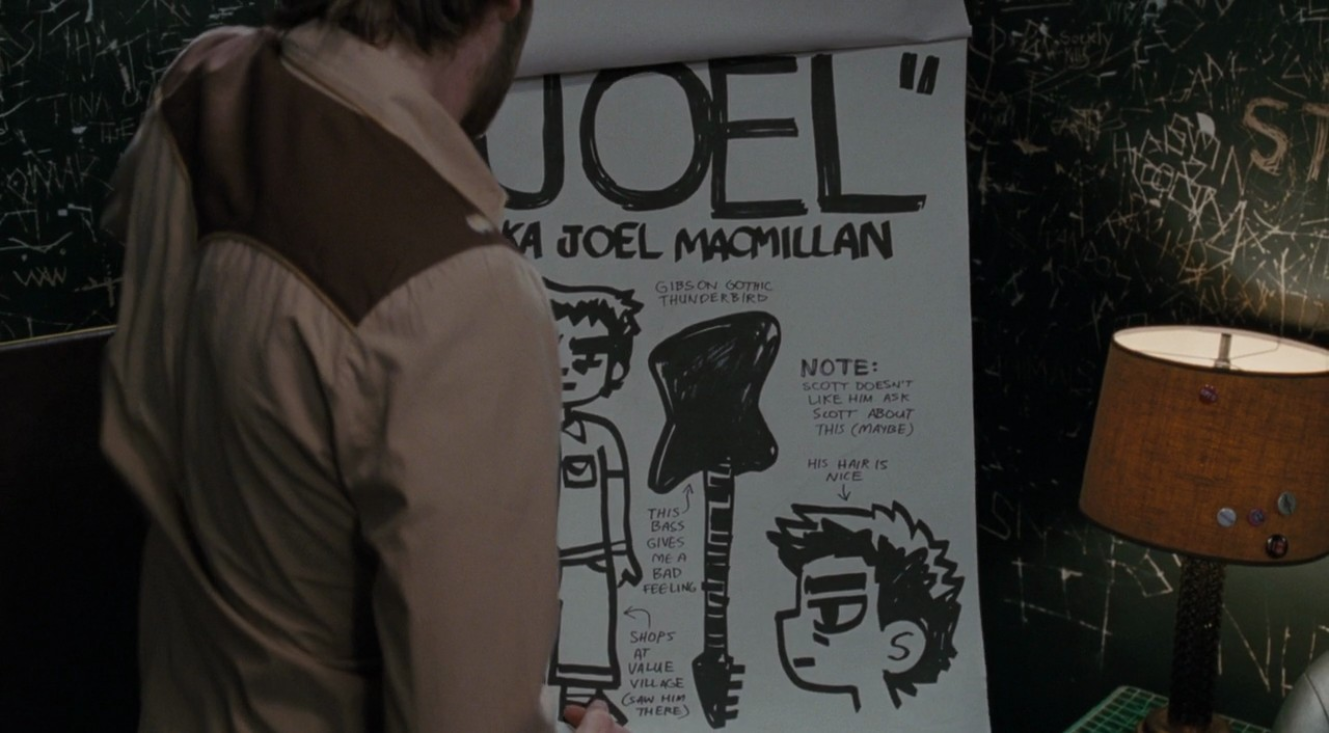 JOEL"
KA JOEL MACMILLAN
GIBSON GOTHIC
THUNDERBIRD
NOTE:
SCOTT DOESN'T
LIKE HIM ASK
SCOTT ABOUT
THIS (MAYBE)
HIS HAIR IS
NICE
THIS
BASS
GIVES
ME A
BAD
FEELING
SHOPS
AT
VALUE
VILLAGE
(SAW HIM
THERE)
S
ST
Society